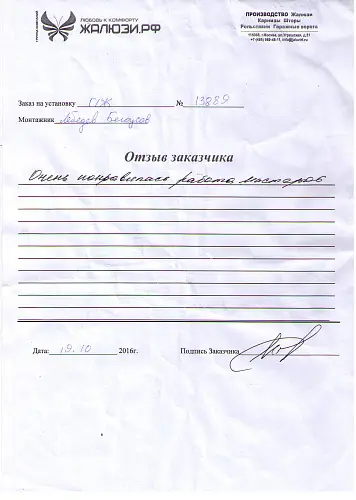 ЛЮБОВЬ К КОМФОРТУ
ЖАЛЮЗИ.РФ
ПРОИЗВОДСТВО Жалюзи
Карнизы Шторы
Рольставни Гаражные ворота
Заказ на установку Г/Ж № 13889
Монтажник Лебедев Белоусов
Отзыв заказчика
Очень понравилась работа мастеров
Дата: 19.10 2016г. Подпись Заказчика